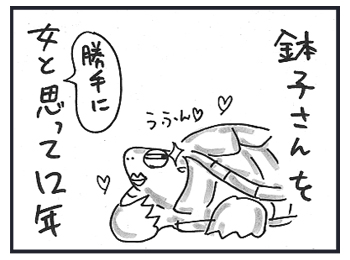 鉢子さんを
うふ〜ん♡
勝手に
女と思って12年